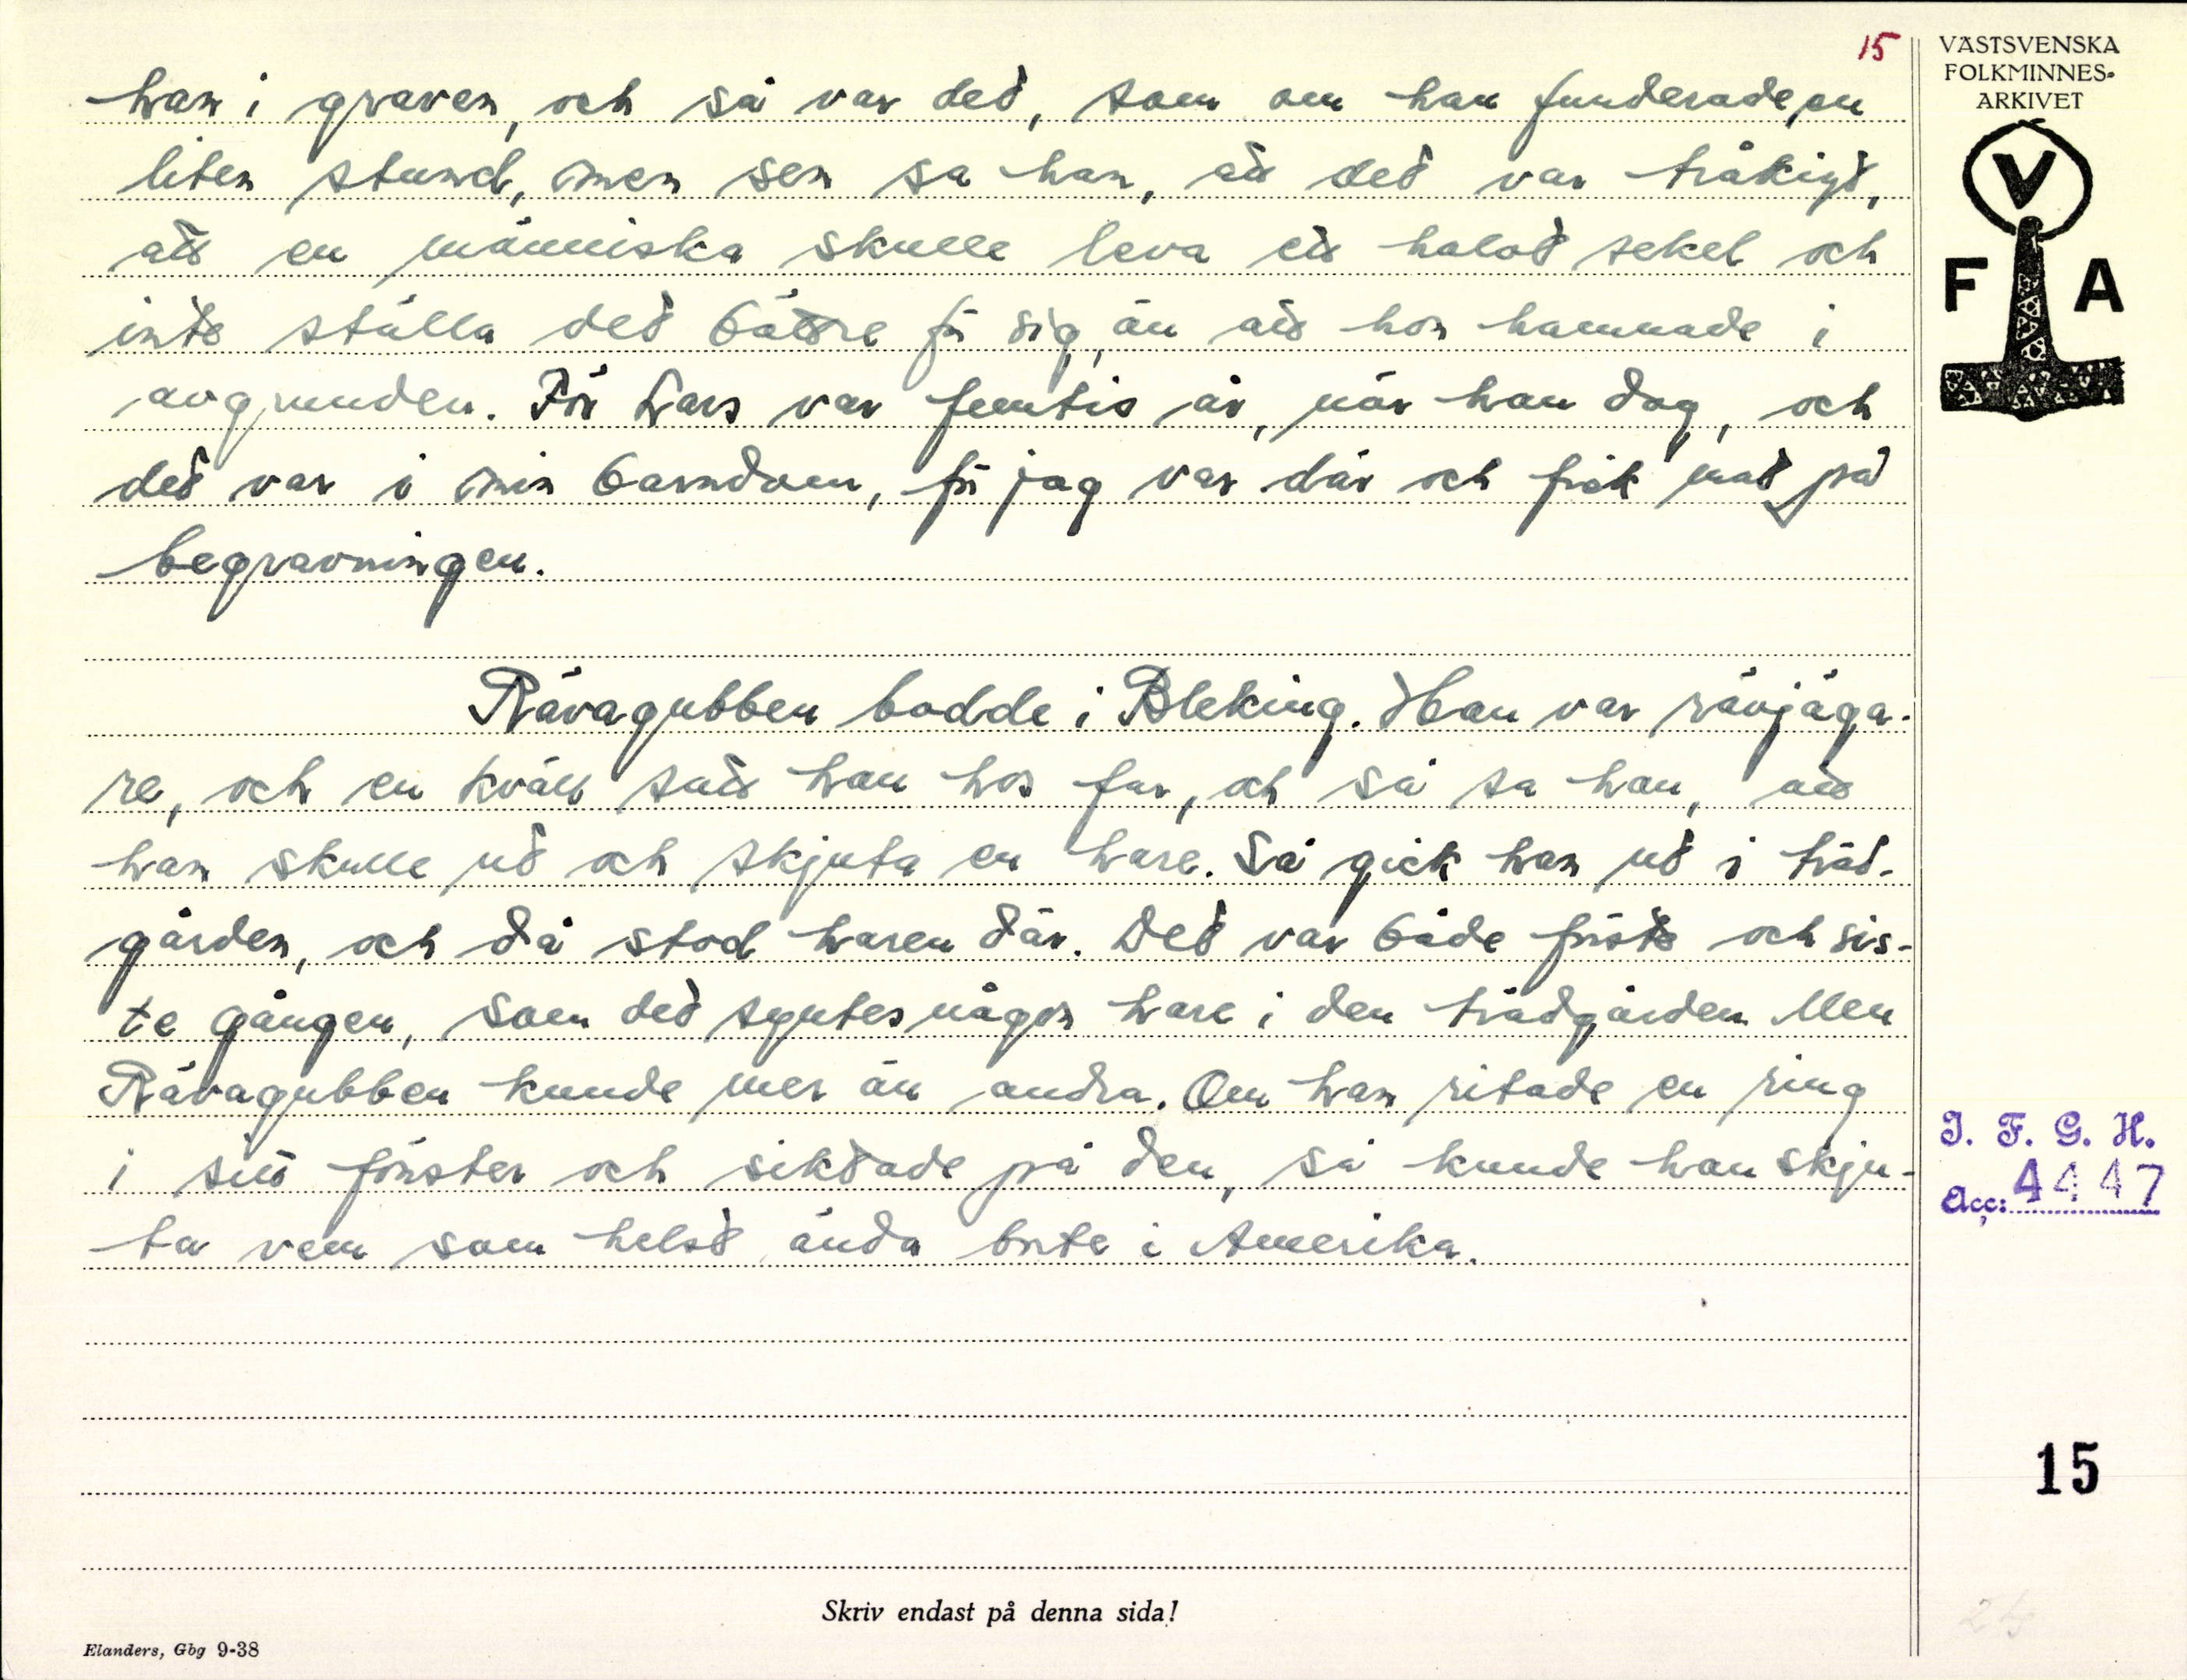 15
han i graven, och så var det, som om han funderade en
liten stund, men sen sa han, att det var tråkigt,
att en människa skulle leva ett halvt sekel och
inte ställa det bättre för sig, än att hon hamnade i
avgrunden. För Lars var femtio år, när han dog, och
det var i min barndom, för jag var där och fick mat på
begravningen.
Rävagubben bodde i Bleking. Han var rävjäga-
re, och en kväll satt han hos far, och så sa han, att
han skulle ut och skjuta en hare. Så gick han ut i träd-
gården, och då stod haren där. Det var både första och sis-
te gången, som det syntes någon hare i den trädgården. Men
Rävagubben kunde mer än andra. Om han ritade en ring
i sitt fönster och siktade på den, så kunde han skju-
ta vem som helst ända borta i Amerika.
Skriv endast på denna sida!
Elanders, Gbg 9-38
VÄSTSVENSKA
FOLKMINNES-
ARKIVET
V
F A
I. F. G. H.
Acc: 4447
15